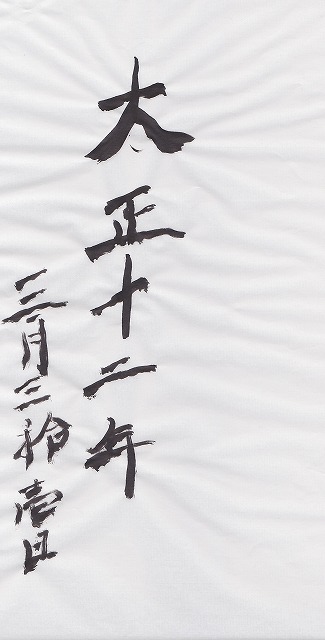 大正十二年
三月三拾壱日